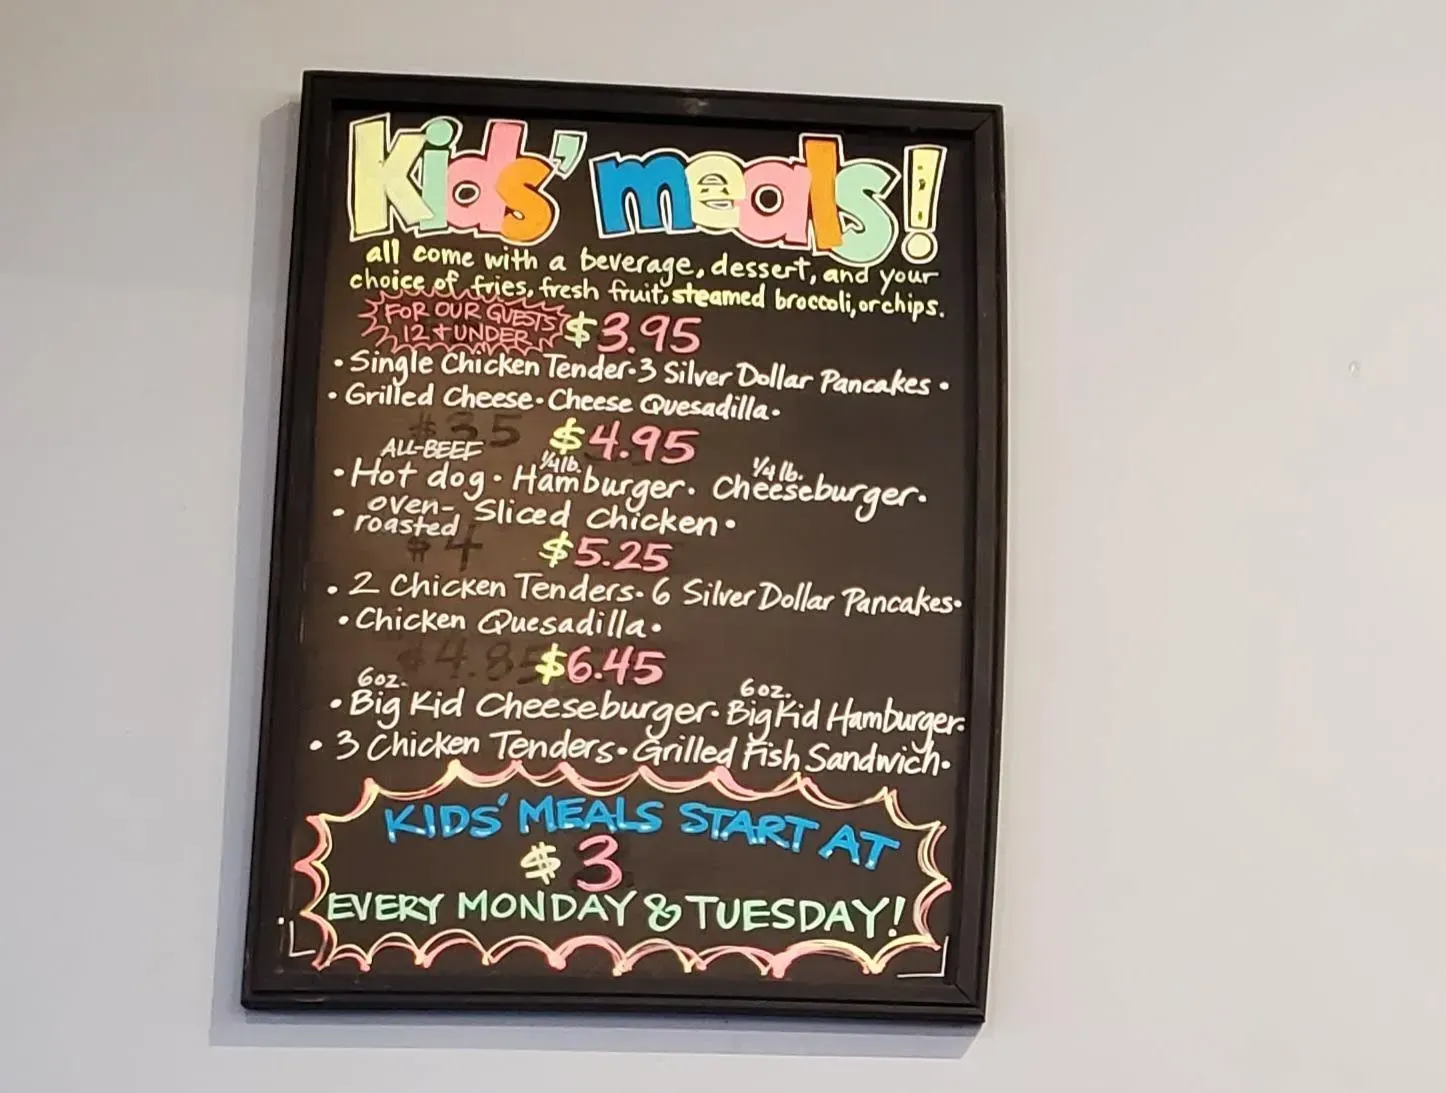 Kids' meals!
all come with a beverage, dessert, and your
choice of fries, fresh fruit, steamed broccoli, or chips.
FOR OUR GUESTS
12 + UNDER
$3.95
• Single Chicken Tender • 3 Silver Dollar Pancakes •
• Grilled Cheese • Cheese Quesadilla •
$35 $4.95
• ALL-BEEF Hot dog • 1/4 lb. Hamburger • 1/4 lb. Cheeseburger •
• oven-roasted Sliced Chicken •
$4 $5.25
• 2 Chicken Tenders • 6 Silver Dollar Pancakes •
• Chicken Quesadilla •
$4.85 $6.45
• 6oz. Big Kid Cheeseburger • 6oz. Big Kid Hamburger •
• 3 Chicken Tenders • Grilled Fish Sandwich •
KIDS' MEALS START AT
$3
EVERY MONDAY & TUESDAY!